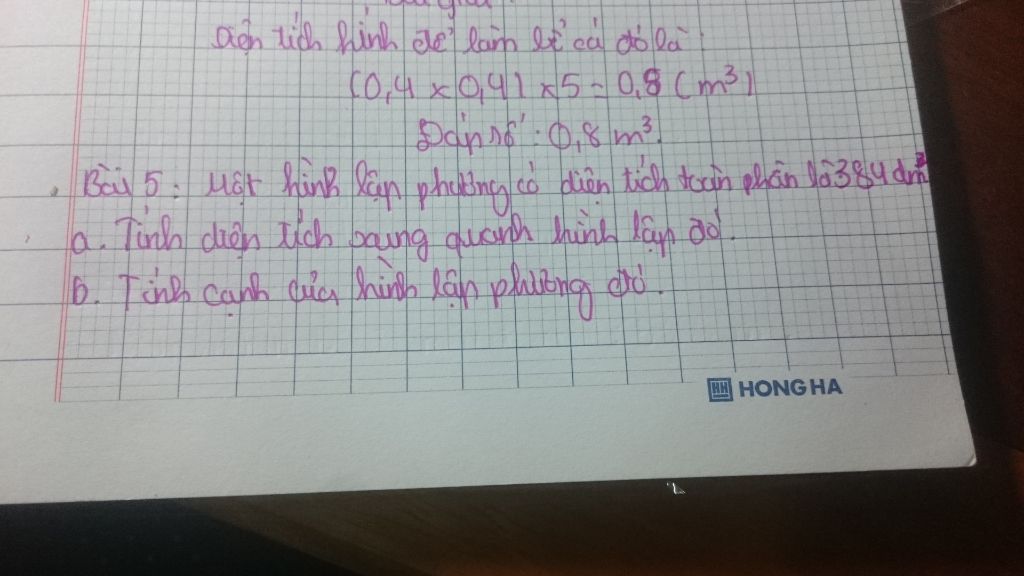 Diện tích hình để làm bể cá đó là:
(0,4 x 0,4) x 5 = 0,8 (m³)
Đáp số: 0,8 m³.
Bài 5: Một hình lập phương có diện tích toàn phần là 384 dm²
a. Tính diện tích xung quanh hình lập đó.
b. Tính cạnh của hình lập phương đó.
HH HONG HA